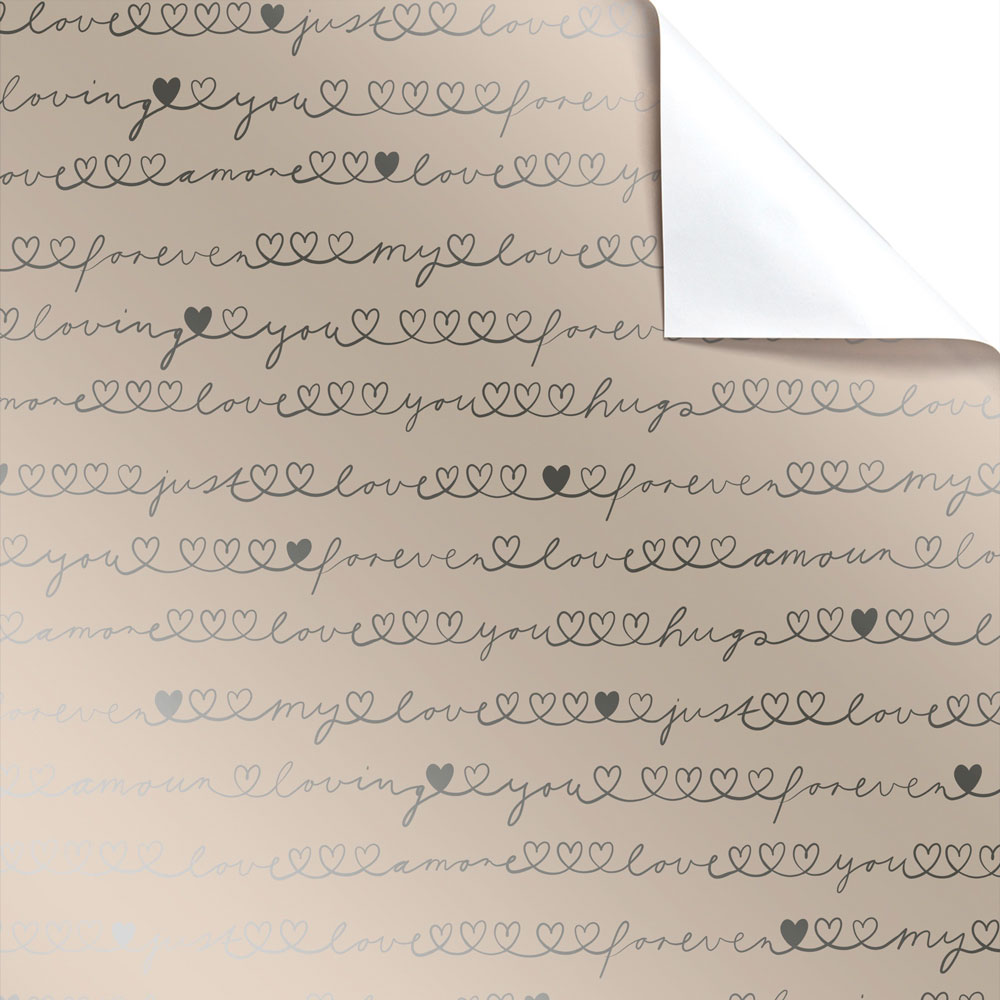 love just love
loving you forever
love amore love you
forever my love
loving you forever
amore love you hugs love
just love forever my
you forever love amour
amore love you hugs
forever my love just love
amour loving you forever
love amore love you
just love love forever my